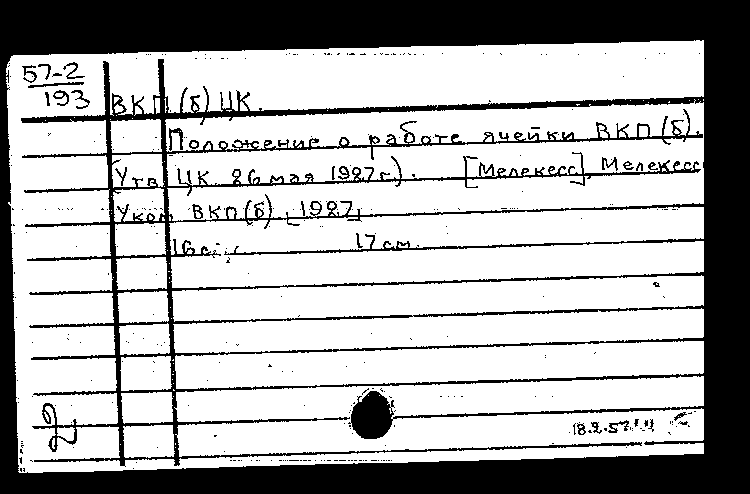 57-2
193
ВКП(б) ЦК.
Положение о работе ячейки ВКП(б).
(Утв. ЦК 26 мая 1927 г.). [Мелекесс], Мелекесс
Уком ВКП(б), [1927]
16 с. 17 см.
2